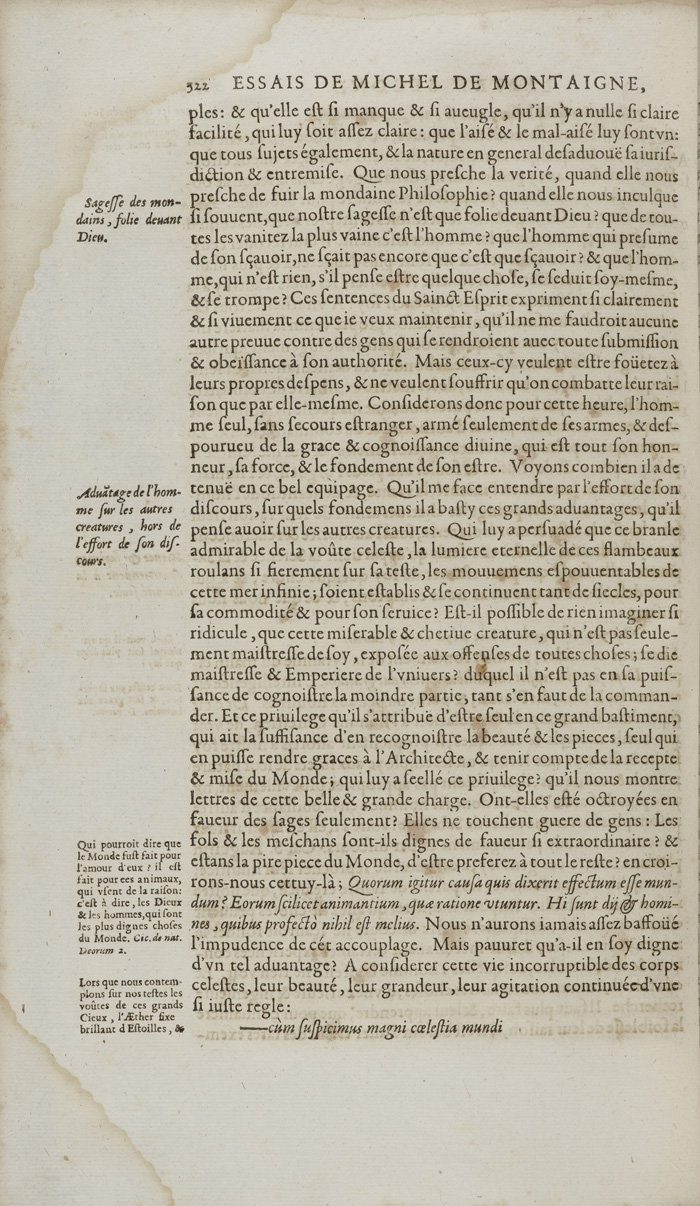 322 ESSAIS DE MICHEL DE MONTAIGNE,
ples: & qu'elle eſt ſi manque & ſi aueugle, qu'il n'y a nulle ſi claire
facilité, qui luy ſoit aſſez claire: que l'aiſé & le mal-aiſé luy ſont vn:
que tous ſujets également, & la nature en general deſaduouë ſa iuriſ-
diction & entremiſe. Que nous preſche la verité, quand elle nous
preſche de fuir la mondaine Philoſophie? quand elle nous inculque
ſi ſouuent, que noſtre ſageſſe n'eſt que folie deuant Dieu? que de tou-
tes les vanitez la plus vaine c'eſt l'homme? que l'homme qui preſume
de ſon ſçauoir, ne ſçait pas encore que c'eſt que ſçauoir? & que l'hom-
me, qui n'eſt rien, s'il penſe eſtre quelque choſe, ſe ſeduit ſoy-meſme,
& ſe trompe? Ces ſentences du Sainct Eſprit expriment ſi clairement
& ſi viuement ce que ie veux maintenir, qu'il ne me faudroit aucune
autre preuue contre des gens qui ſe rendroient auec toute ſubmiſſion
& obeïſſance à ſon authorité. Mais ceux-cy veulent eſtre foüetez à
leurs propres deſpens, & ne veulent ſouffrir qu'on combatte leur rai-
ſon que par elle-meſme. Conſiderons donc pour cette heure, l'hom-
me ſeul, ſans ſecours eſtranger, armé ſeulement de ſes armes, & deſ-
pourueu de la grace & cognoiſſance diuine, qui eſt tout ſon hon-
neur, ſa force, & le fondement de ſon eſtre. Voyons combien il a de
tenuë en ce bel equipage. Qu'il me face entendre par l'effort de ſon
diſcours, ſur quels fondemens il a baſty ces grands aduantages, qu'il
penſe auoir ſur les autres creatures. Qui luy a perſuadé que ce branle
admirable de la voûte celeſte, la lumiere eternelle de ces flambeaux
roulans ſi fierement ſur ſa teſte, les mouuemens eſpouuentables de
cette mer infinie; ſoient eſtablis & ſe continuent tant de ſiecles, pour
ſa commodité & pour ſon ſeruice? Eſt-il poſſible de rien imaginer ſi
ridicule, que cette miſerable & chetiue creature, qui n'eſt pas ſeule-
ment maiſtreſſe de ſoy, expoſée aux offenſes de toutes choſes; ſe die
maiſtreſſe & Emperiere de l'vniuers? duquel il n'eſt pas en ſa puiſ-
ſance de cognoiſtre la moindre partie, tant s'en faut de la comman-
der. Et ce priuilege qu'il s'attribuë d'eſtre ſeul en ce grand baſtiment,
qui ait la ſuffiſance d'en recognoiſtre la beauté & les pieces, ſeul qui
en puiſſe rendre graces à l'Architecte, & tenir compte de la recepte
& miſe du Monde; qui luy a ſeellé ce priuilege? qu'il nous montre
lettres de cette belle & grande charge. Ont-elles eſté octroyées en
faueur des ſages ſeulement? Elles ne touchent guere de gens: Les
fols & les meſchans ſont-ils dignes de faueur ſi extraordinaire? &
eſtans la pire piece du Monde, d'eſtre preferez à tout le reſte? en croi-
rons-nous cettuy-là; Quorum igitur cauſa quis dixerit effectum eſſe mun-
dum? Eorum ſcilicet animantium, quæ ratione vtuntur. Hi ſunt dij & homi-
nes, quibus profectò nihil eſt melius. Nous n'aurons iamais aſſez baffoüé
l'impudence de cét accouplage. Mais pauuret qu'a-il en ſoy digne
d'vn tel aduantage? A conſiderer cette vie incorruptible des corps
celeſtes, leur beauté, leur grandeur, leur agitation continuée d'vne
ſi iuſte regle:
—cùm ſuſpicimus magni cœleſtia mundi
Sageſſe des mon-
dains, folie deuant
Dieu.
Aduãtage de l'hom-
me ſur les autres
creatures, hors de
l'effort de ſon diſ-
cours.
Qui pourroit dire que
le Monde fuſt fait pour
l'amour d'eux? il eſt
fait pour ces animaux,
qui vſent de la raiſon:
c'eſt à dire, les Dieux
& les hommes, qui ſont
les plus dignes choſes
du Monde. Cic. de nat.
Deorum 2.
Lors que nous contem-
plons ſur nos teſtes les
voûtes de ces grands
Cieux, l'Æther fixe
brillant d'Eſtoilles, &